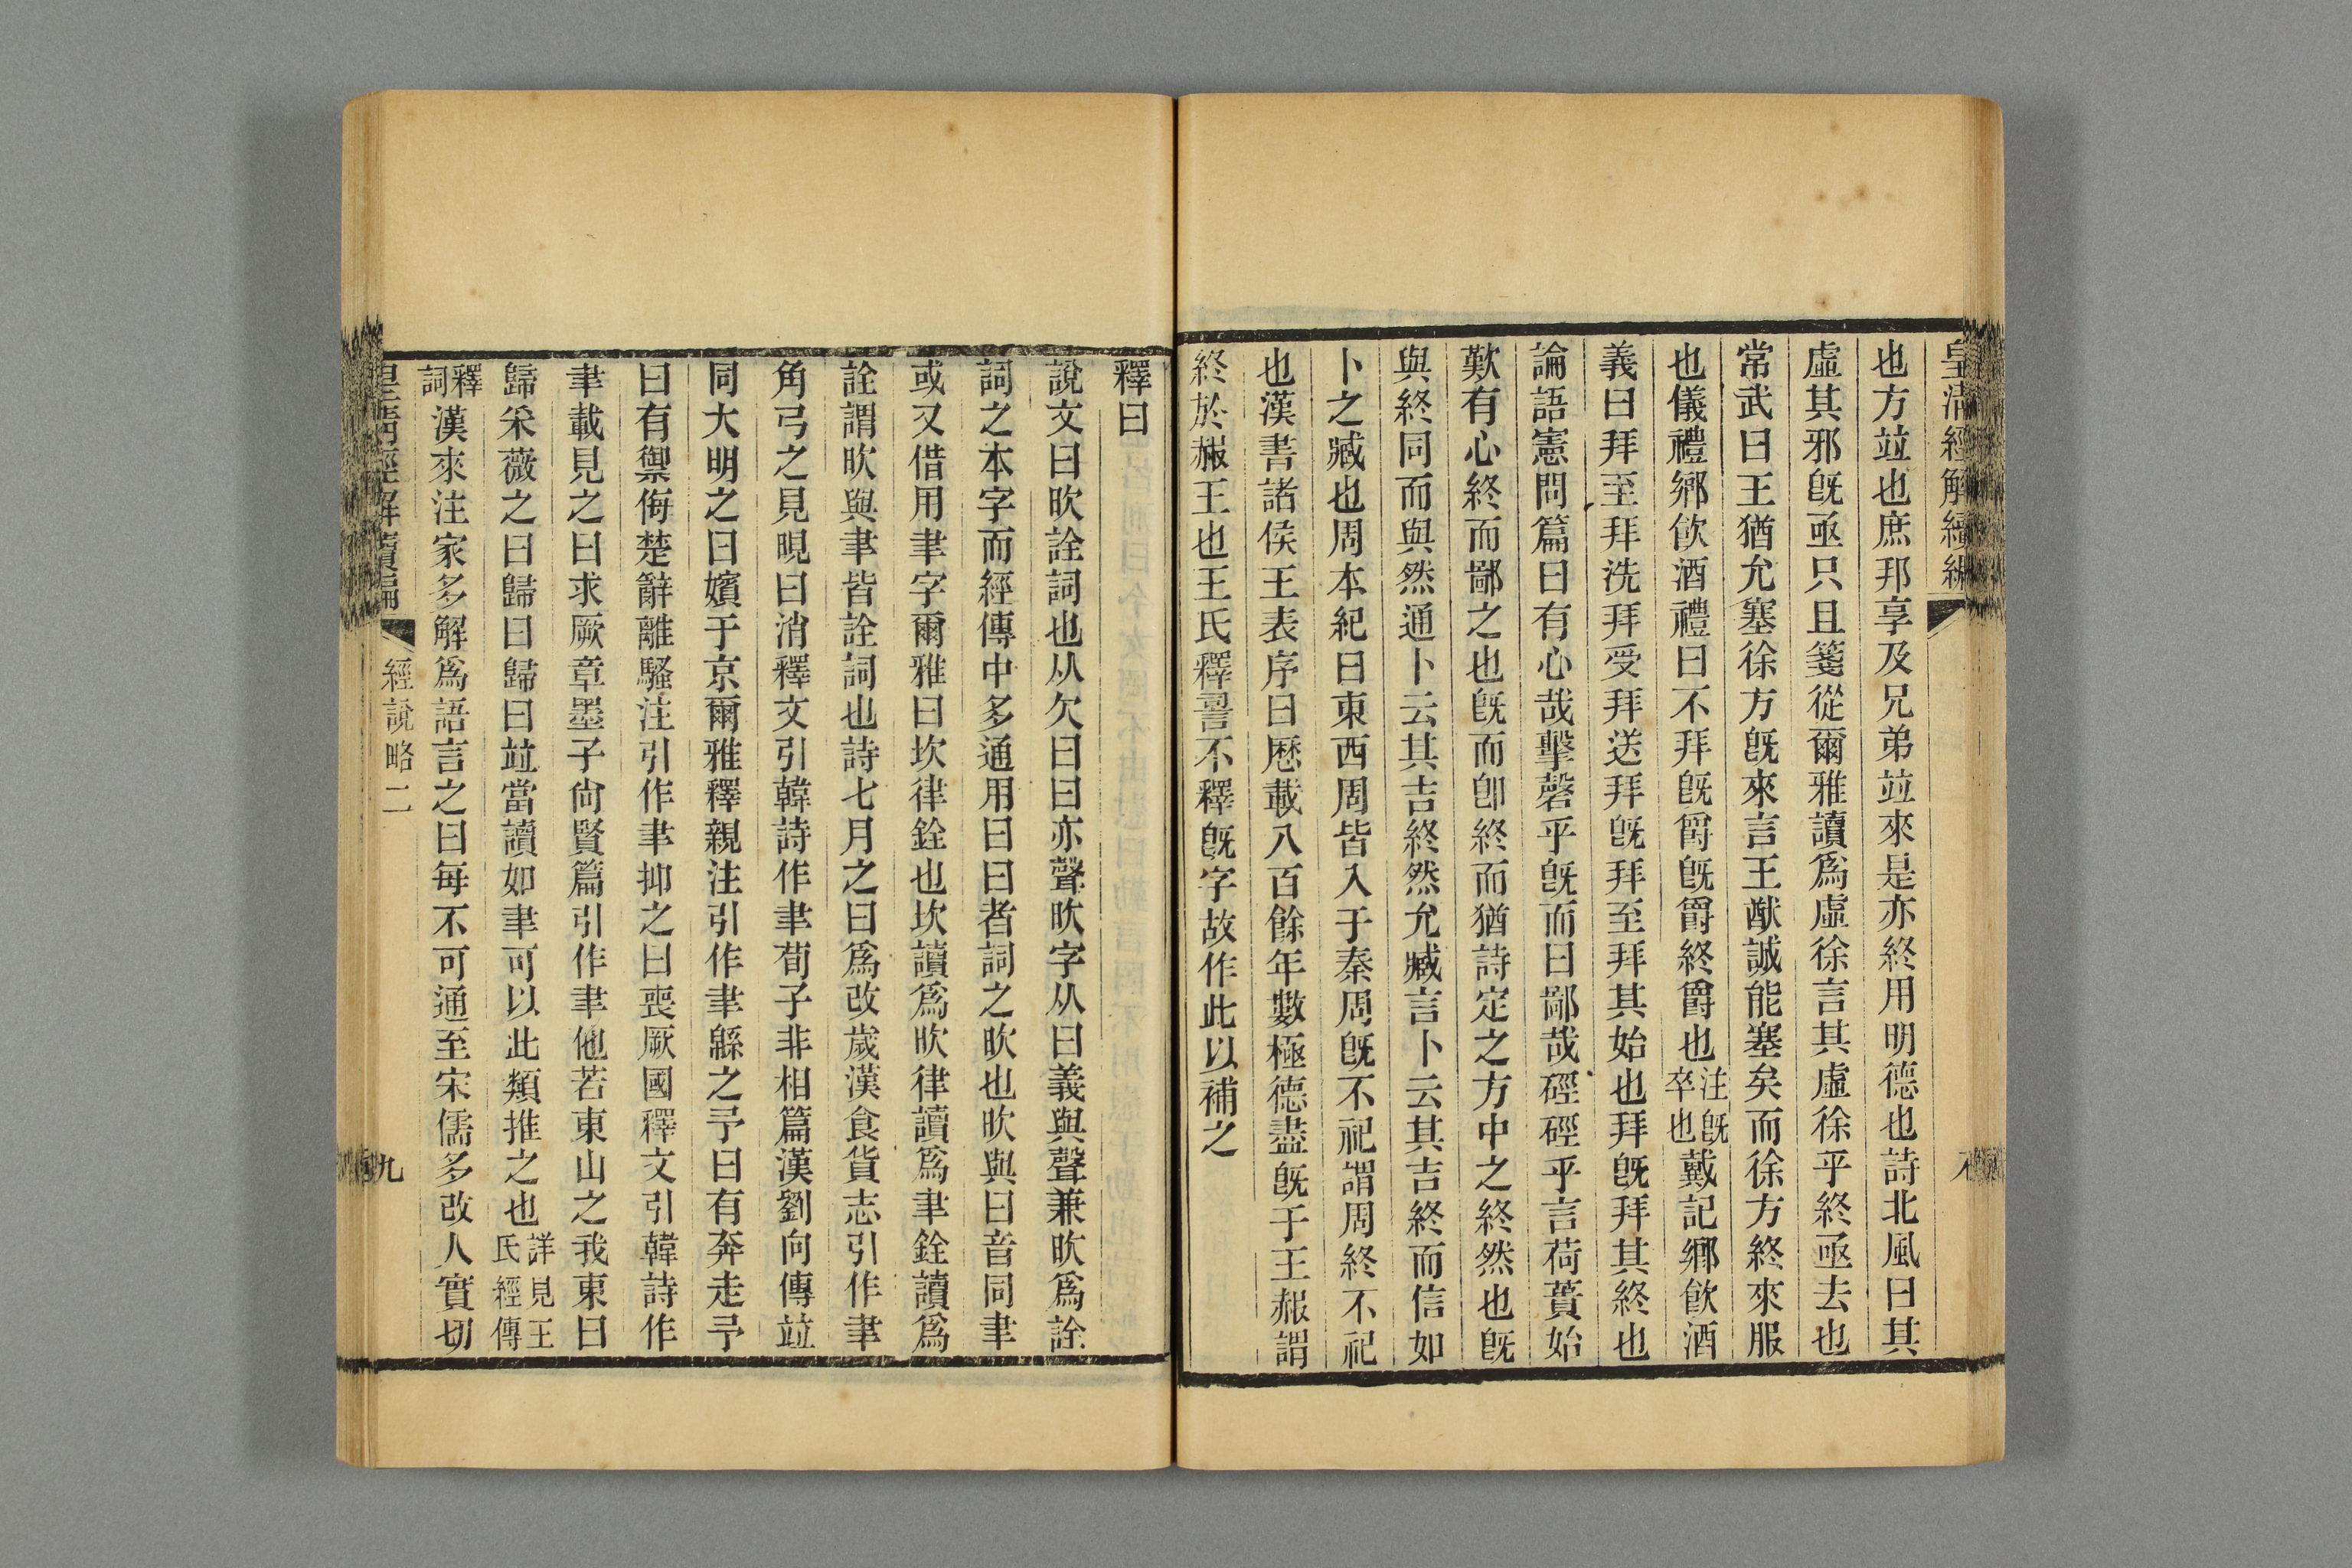 皇清經解續編
也方竝也庶邦享及兄弟竝來是亦終用明德也詩北風曰其
虛其邪旣亟只且箋從爾雅讀爲虛徐言其虛徐乎終亟去也
常武曰王猶允塞徐方旣來言王猷誠能塞矣而徐方終來服
也儀禮鄉飮酒禮曰不拜旣爵旣爵終爵也注旣卒也戴記鄉飮酒
義曰拜至拜洗拜受拜送拜旣拜至拜其始也拜旣拜其終也
論語憲問篇曰有心哉擊磬乎旣而曰鄙哉硜硜乎言荷蕢始
歎有心終而鄙之也旣而卽終而猶詩定之方中之終然也旣
與終同而與然通卜云其吉終然允臧言卜云其吉終而信如
卜之臧也周本紀曰東西周皆入于秦周旣不祀謂周終不祀
也漢書諸侯王表序曰厯載八百餘年數極德盡旣于王赧謂
終於赧王也王氏釋書不釋旣字故作此以補之
釋曰
說文曰欥詮詞也从欠曰曰亦聲欥字从曰義與聲兼欥爲詮
詞之本字而經傳中多通用曰曰者詞之欥也欥與曰音同聿
或又借用聿字爾雅曰坎律銓也坎讀爲欥律讀爲聿銓讀爲
詮謂欥與聿皆詮詞也詩七月之曰爲改歲漢食貨志引作聿
角弓之見晛曰消釋文引韓詩作聿荀子非相篇漢劉向傳竝
同大明之曰嬪于京爾雅釋親注引作聿緜之予曰有奔走予
曰有禦侮楚辭離騷注引作聿抑之曰喪厥國釋文引韓詩作
聿載見之曰求厥章墨子尙賢篇引作聿他若東山之我東曰
歸采薇之曰歸曰歸曰竝當讀如聿可以此類推之也詳見王氏經傳
釋詞漢來注家多解爲語言之曰每不可通至宋儒多改人實切
皇清經解續編
經說略二
九